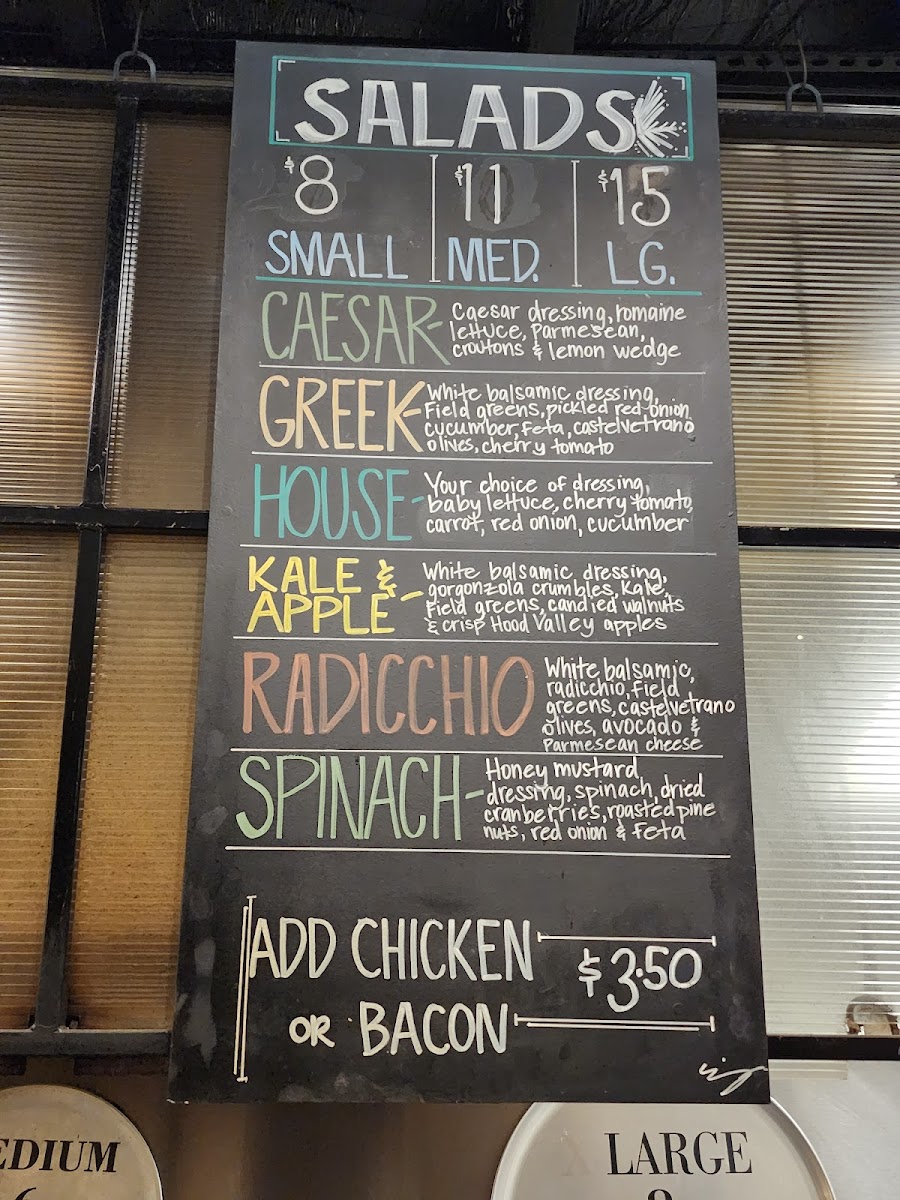 SALADS
$8 $11 $15
SMALL MED. LG.
CAESAR- Caesar dressing, romaine
lettuce, Parmesean,
croutons & lemon wedge
GREEK- White balsamic dressing,
Field greens, pickled red onion,
cucumber, feta, castelvetrano
olives, cherry tomato
HOUSE- Your choice of dressing,
baby lettuce, cherry tomato,
carrot, red onion, cucumber
KALE &
APPLE- White balsamic dressing,
gorgonzola crumbles, Kale,
Field greens, candied walnuts
& crisp Hood Valley apples
RADICCHIO White balsamic,
radicchio, field
greens, castelvetrano
olives, avocado &
Parmesean cheese
SPINACH- Honey mustard
dressing, spinach, dried
cranberries, roasted pine
nuts, red onion & feta
ADD CHICKEN
OR BACON
$3.50
LARGE